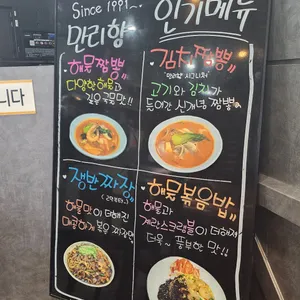 Since 1991~
만리향
인기메뉴
해물짬뽕
다양한 해물과
깊은 국물맛!!
김치짬뽕
"만리향 시그니처"
고기와 김치가
들어간 신개념 짬뽕
쟁반짜장
해물맛이 더해진
매콤하게 볶은 짜장면
해물볶음밥
해물과
계란스크램블이 더해져
더욱~ 풍부한 맛!!
니다